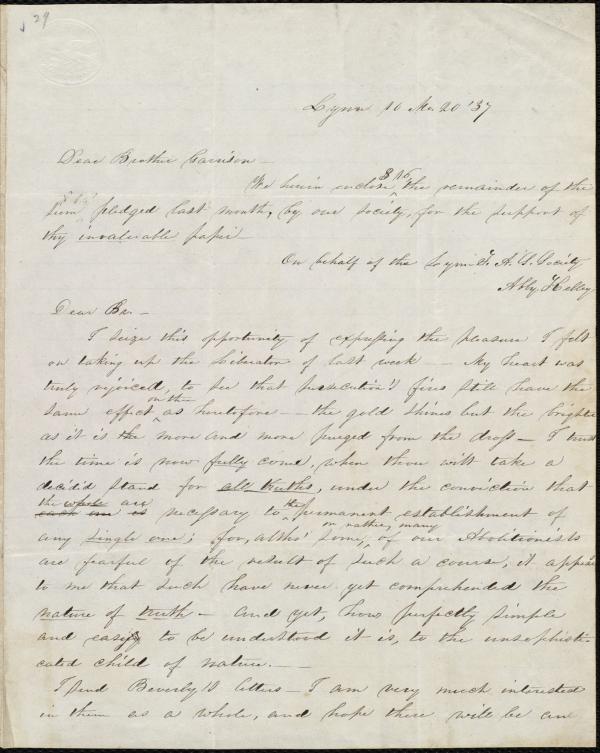 29
Lynn 10 Mo 20 '37
Dear Brother Garrison—
We herein inclose $16, the remainder of the
sum pledged last month, by our society, for the support of
thy invaluable paper—
On behalf of the Lynn F. A. S. Society
Abby Kelley
Dear Br.—
I seize this opportunity of expressing the pleasure I felt
on taking up the Liberator of last week — My heart was
truly rejoiced, to see that persecution's fires still have the
same effect on thee as heretofore — the gold shines but the brighter
as it is the more and more purged from the dross — I trust
the time is now fully come, when thou wilt take a
decided stand for all truths, under the conviction that
the whole are
each one is necessary to the permanent establishment of
or rather, many
any single one; for, altho' some, of our Abolitionists
are fearful of the result of such a course, it appears
to me that such have never yet comprehended the
nature of truth — And yet, how perfectly simple
and easy to be understood it is, to the unsophisti-
cated child of nature.—
I find Beverly's letters — I am very much interested
in them as a whole, and hope there will be an